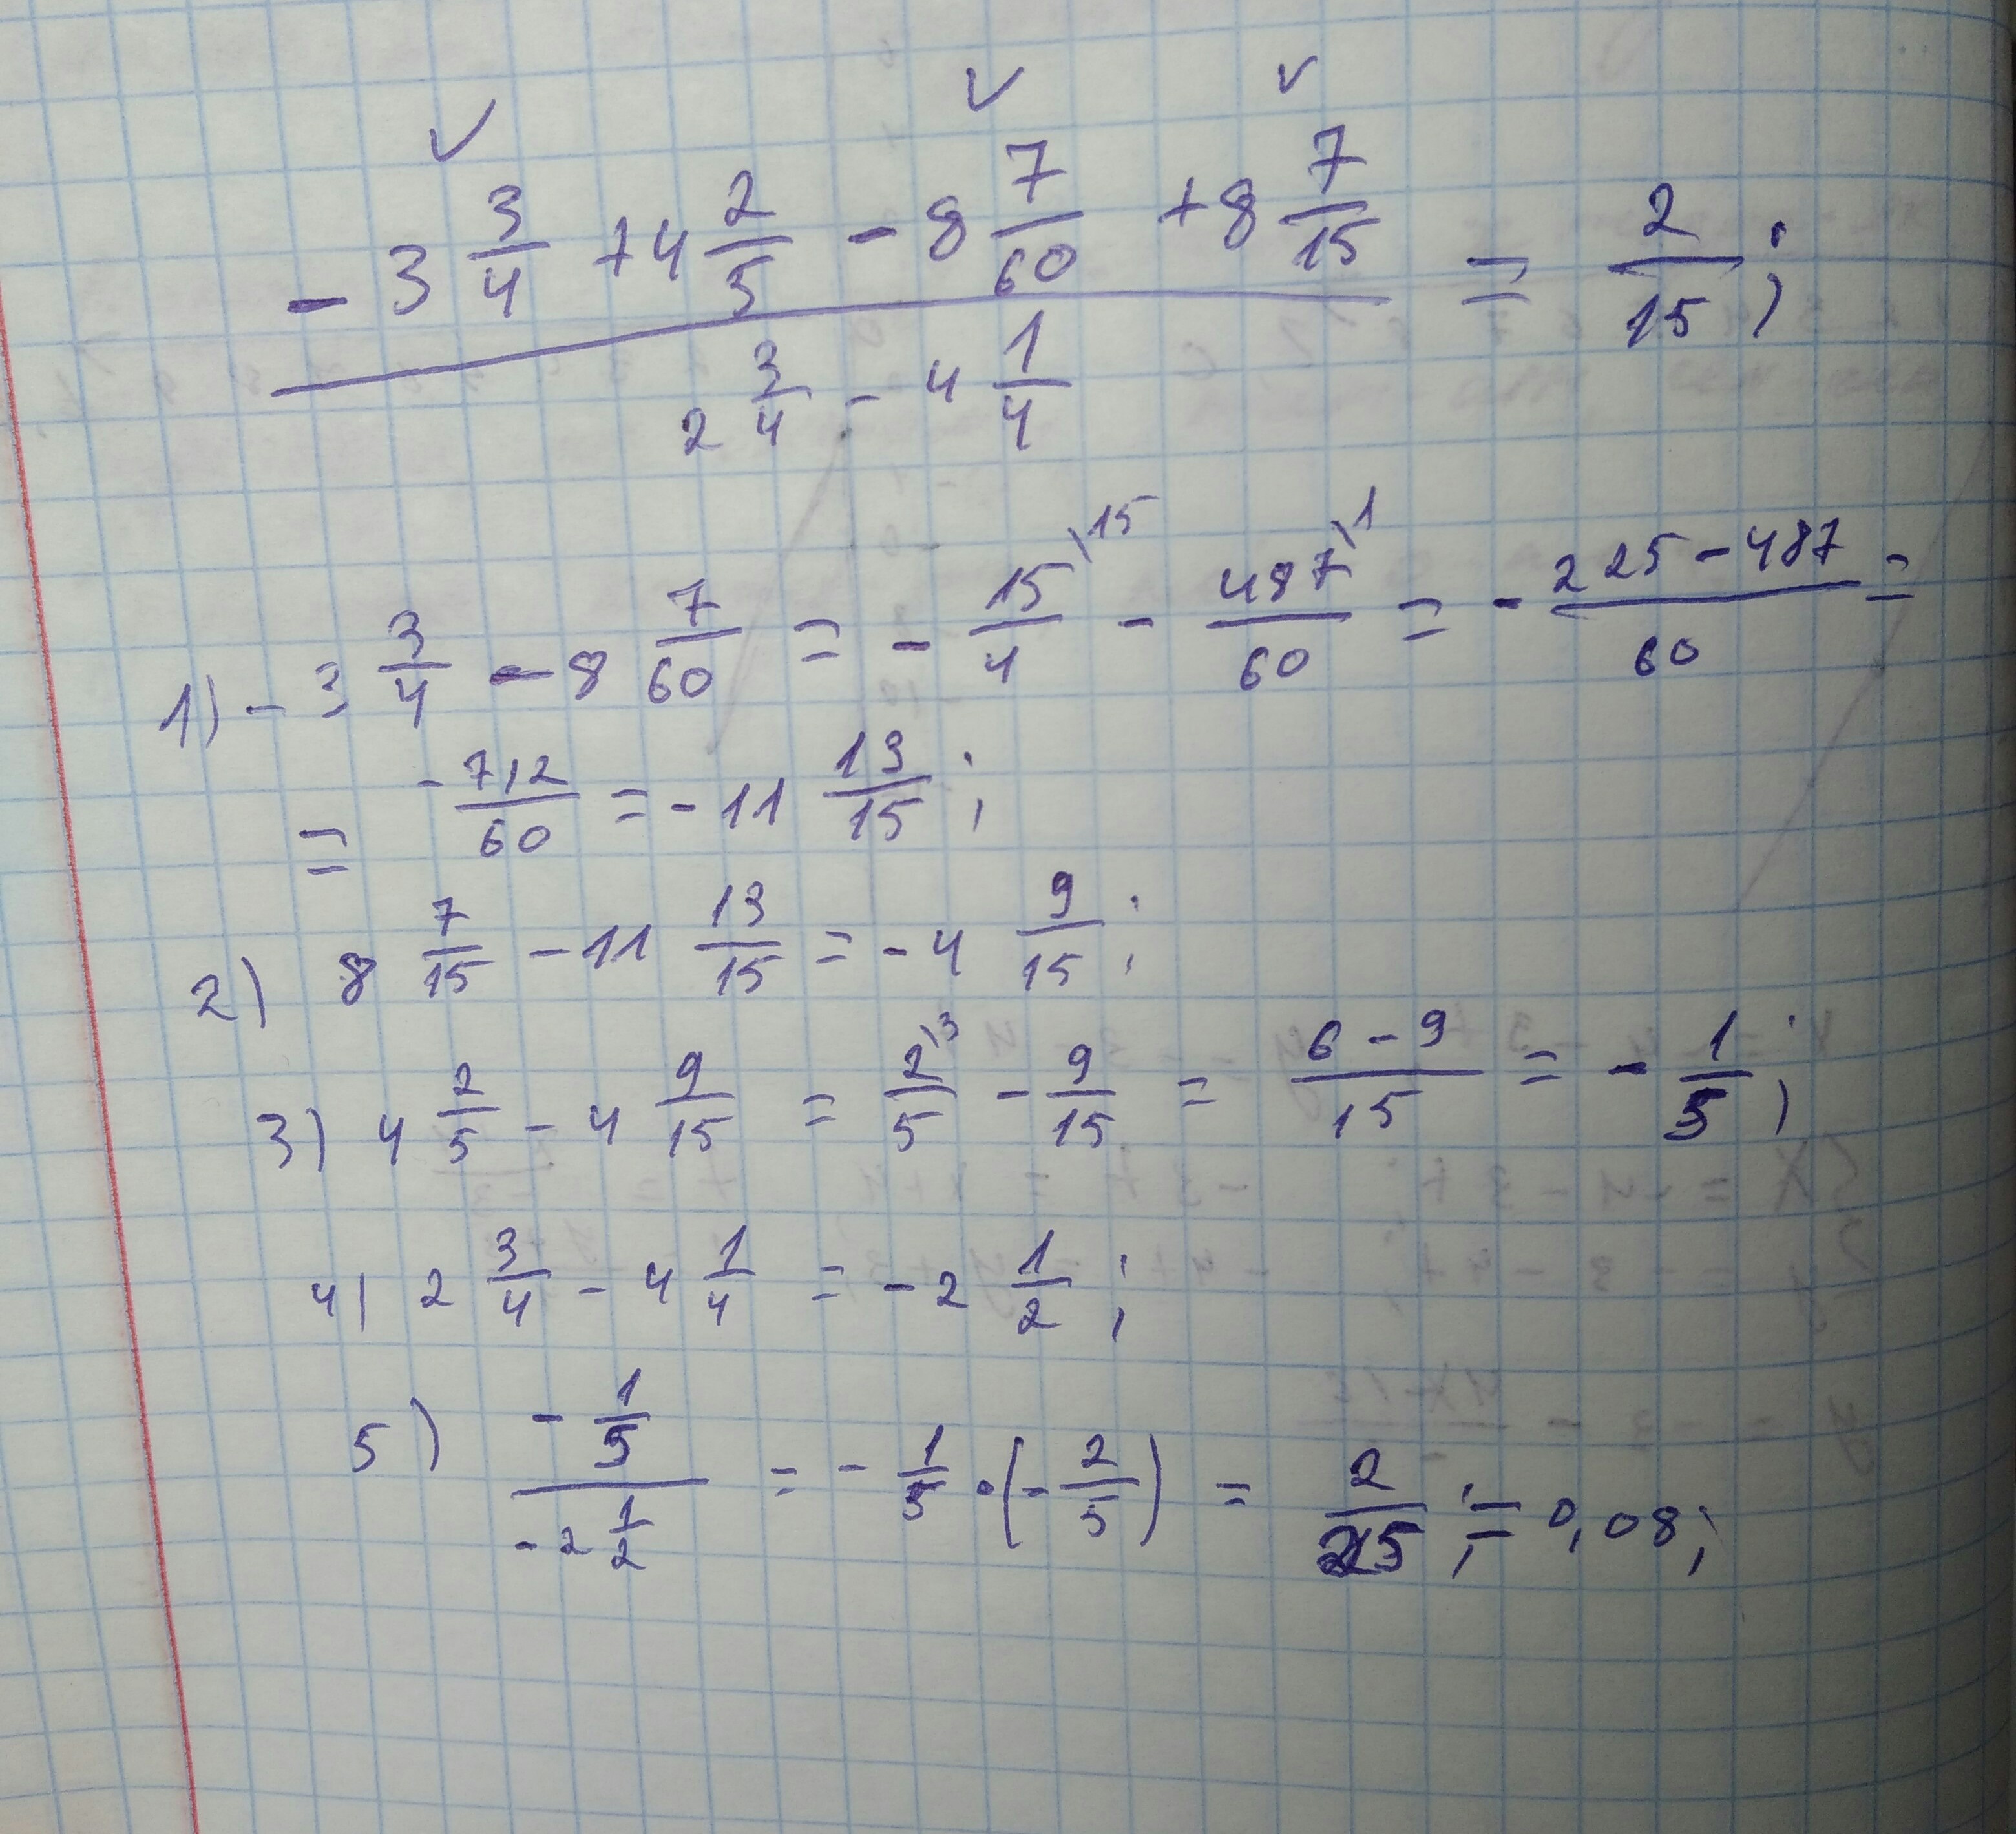 ✓ ✓ ✓
(- 3 3/4 + 4 2/5 - 8 7/60 + 8 7/15) / (2 3/4 - 4 1/4) = 2/15 ;
1) - 3 3/4 - 8 7/60 = - 15/4 \15 - 487/60 \1 = - (225 - 487)/60 =
= - 712/60 = - 11 13/15 ;
2) 8 7/15 - 11 13/15 = - 4 9/15 ;
3) 4 2/5 - 4 9/15 = 2/5 \3 - 9/15 = (6 - 9)/15 = - 1/5 ;
4) 2 3/4 - 4 1/4 = - 2 1/2 ;
5) (- 1/5)/(- 2 1/2) = - 1/5 · (- 2/5) = 2/25 ; = 0,08 ;